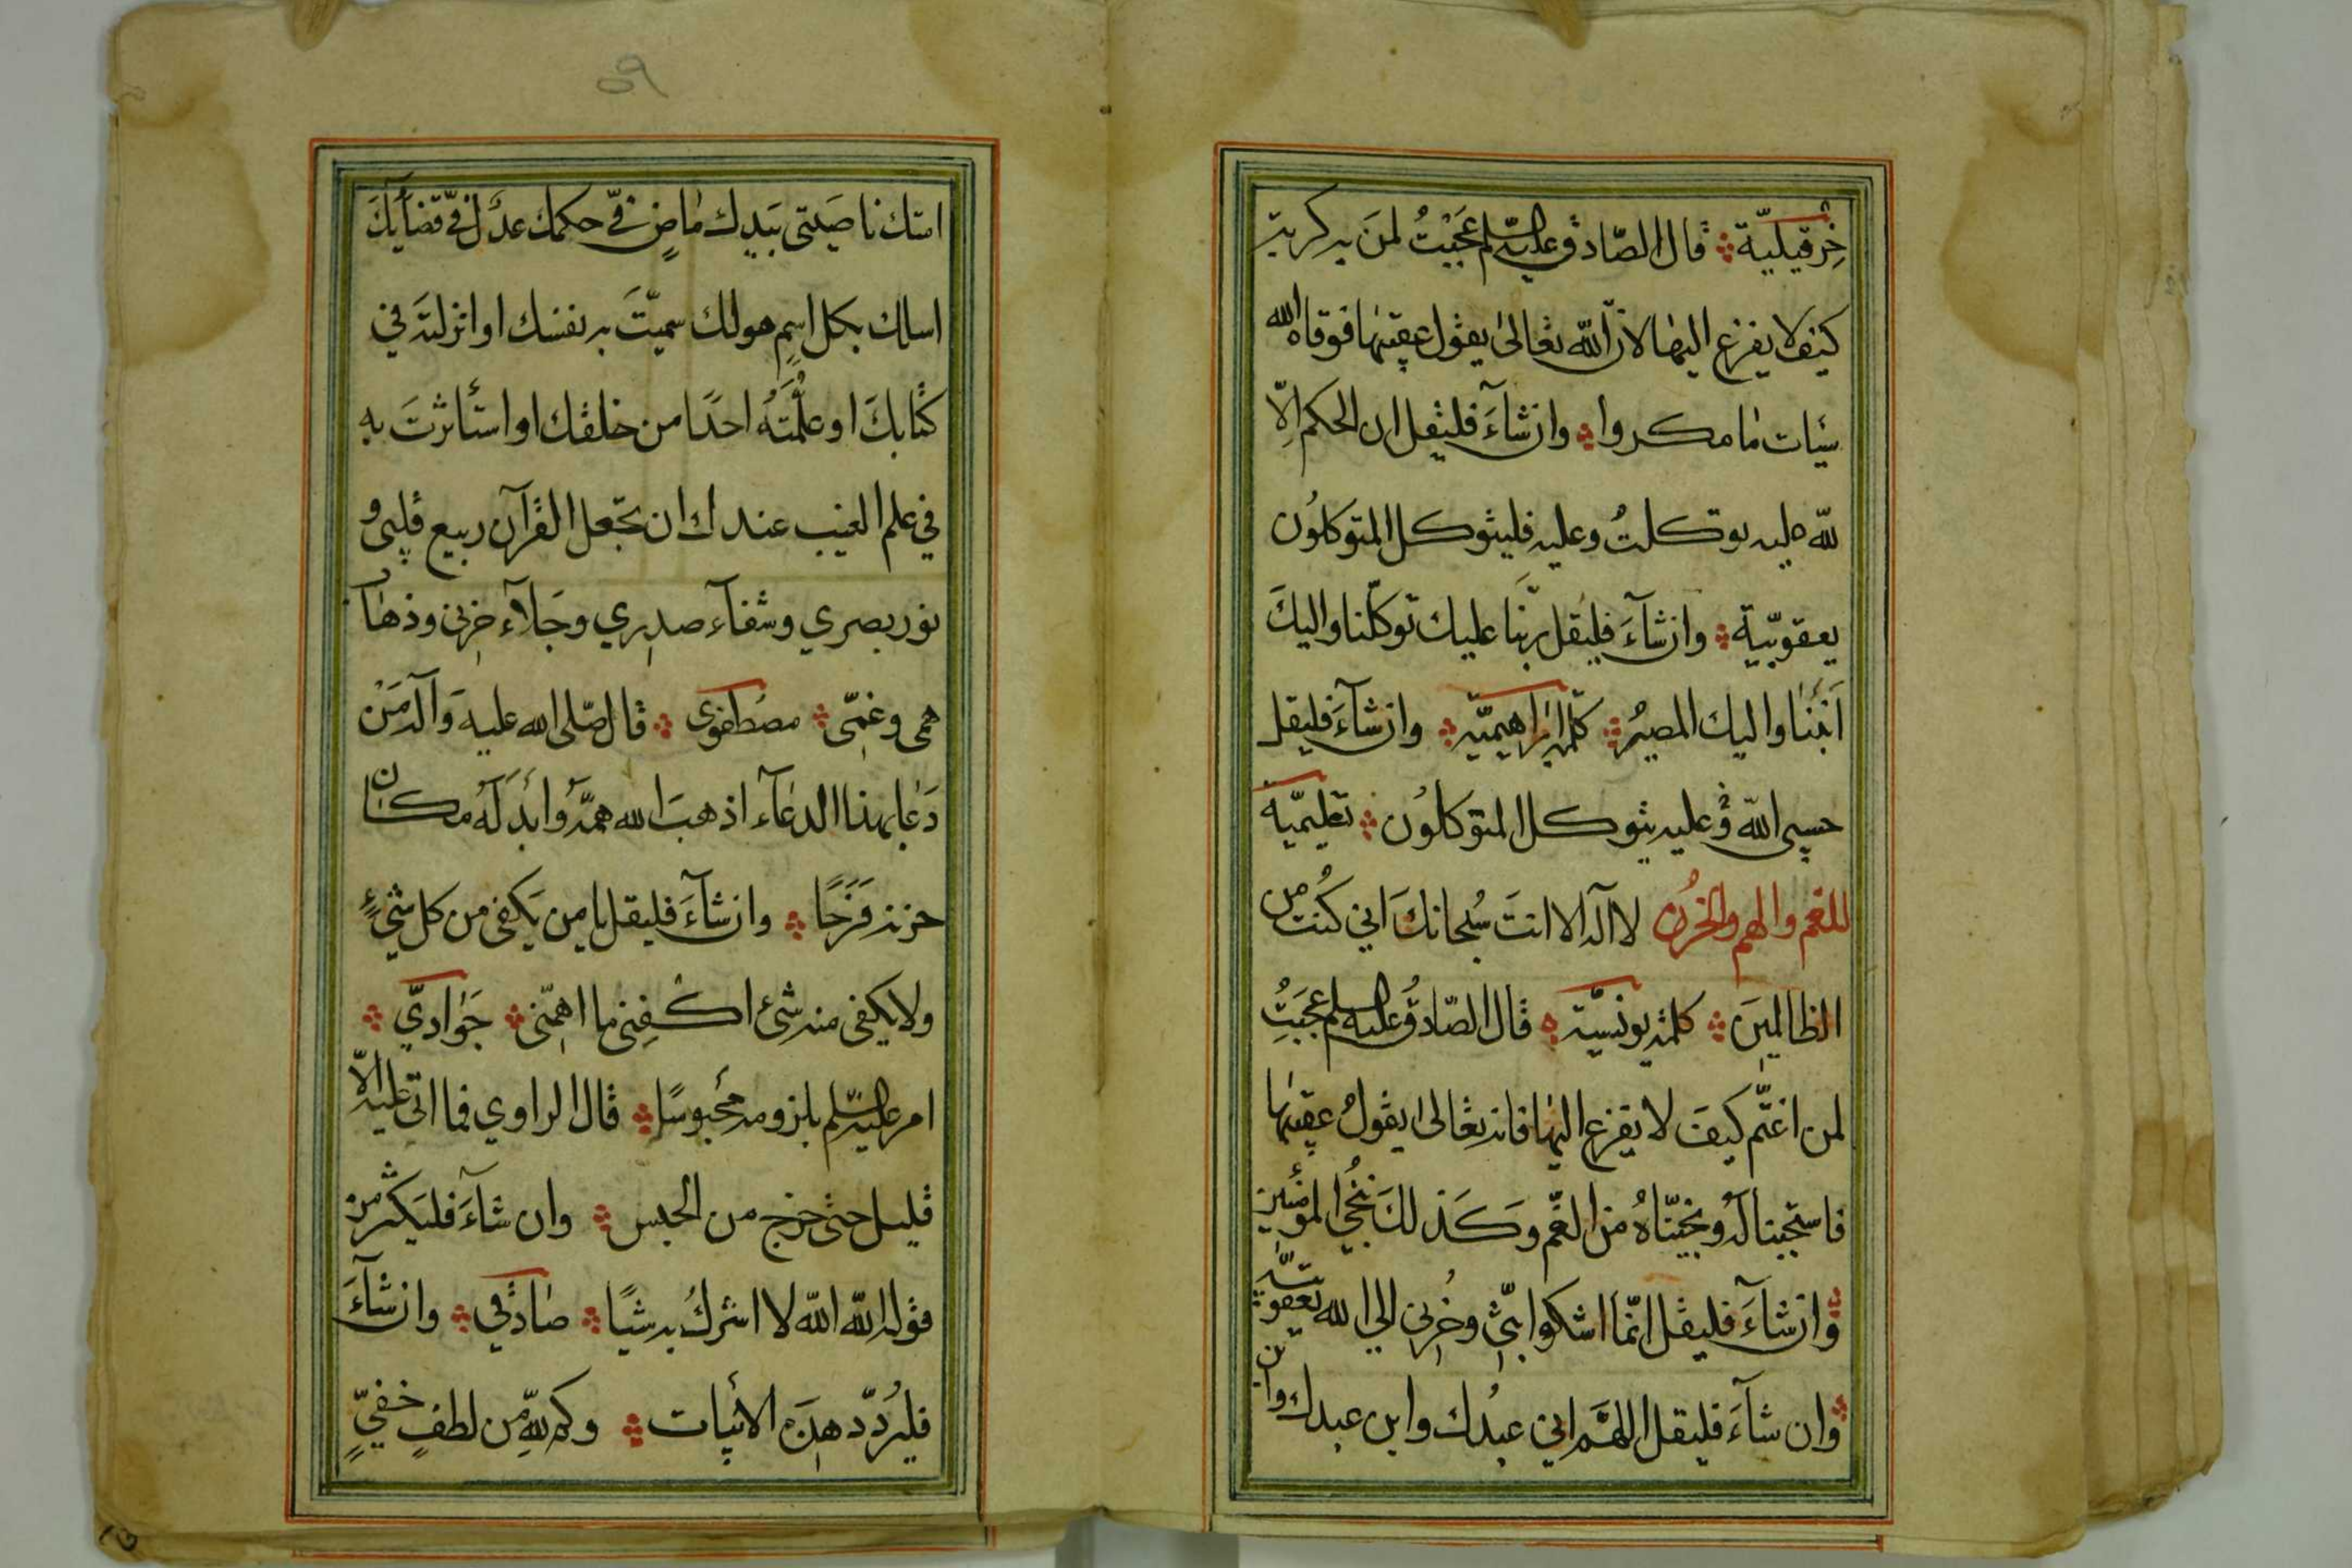 خرقيليّة قال الصّادق عليه السلم عَجَبْتُ لمَن به كربة
كيَف لا يفزع اليها لانّ الله تعالىٰ يقول عقيبها فوقاه الله
سيّات ما مكروا وان شآءَ فليقل ان الحكم الّا
للّه عليه توكلتُ وعليه فليتوكل المتوكلوُن
يعقوبّية وان شآءَ فليقل ربّنا عليك توكلّنا واليكَ
اَنَبْنا واليك المصيرُ كلمة ابراهيميّه وان شآءَ فليقل
حسبى الله وُعليه يتوكل المتوكلوُن تعليميّة
للغم والهم والحُزن لا آله الا انتَ سُبحانكَ انى كُنت من
الظالمِينَ كلمة يونسيّة قال الصّادقُ عليه السلم عجَبَتُ
لمن اغتّم كيفَ لا يفزع اليها فانه تعالى يقولُ عقيبها
فاستجبنا لهُ ونجّيناهُ من الغمّ وكَذلكَ ننجُي المؤمنين
وان شآءَ فليقل انّما اشكوا بثّي وحُزنى الى الله يعقوبيّة
وان شآءَ فليقل اللهَّم انى عبدُك وابن عبدك وابن
٥٩
امتك ناصيَتى بيَدِك ماضٍ فّي حكمك عدَل فّي قضآيكَ
اسالك بكل اسِمٍ هولك سميّتَ به نفسك او انزلته في
كتابكَ او علّمَتهُ احدًا من خلقك او استأثرتَ به
في علم الغيب عندك ان تجعل القرآن ربيع قلبى و
نور بصري وشفآء صدري وجَلاء حزنى وذهآ
همى وغمّى مصطفوى قال صّلى الله عليه وَآله مَنْ
دَعا بهذا الدعآء اذهبَ الله همّهُ وابدَلَهُ مكان
حزنه فَرَحًا وان شآءَ فليقل يا من يَكفى من كل شيءٍ
ولا يكفى منه شئ اكفِنى ما اهمّنى جَواديّ
امر عليه السّلم بلزومه محُبوسًا قال الراوي فما اتى عليه الّا
قليل حتى خرج من الحبس وان شآءَ فليَكثر من
قوله الله الله لا اشركُ به شيًا صادقي وان شآءَ
فليُردّد هذه الابيات وكم للّهِ من لطفٍ خفيٍّ